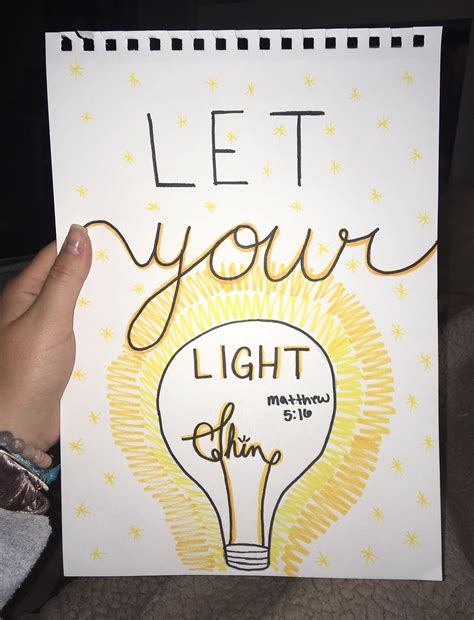 LET
your
LIGHT
matthew
5:16
Shin